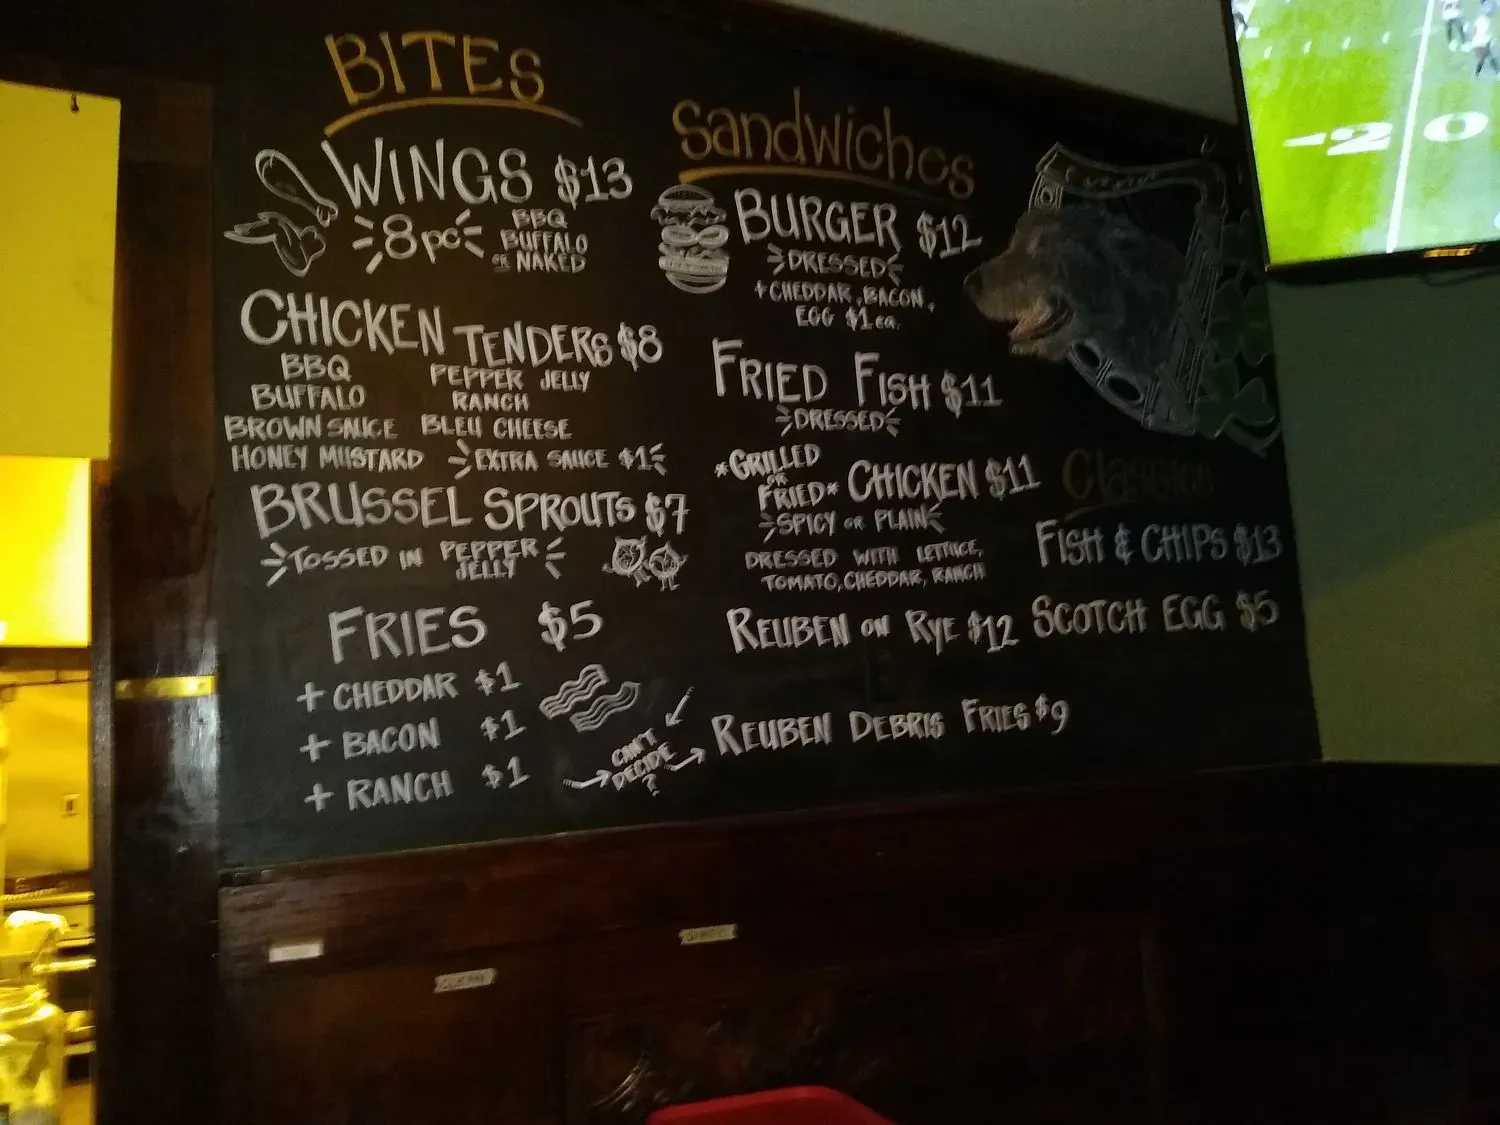 BITES
WINGS $13
8pc
BBQ
BUFFALO
OR NAKED
CHICKEN TENDERS $8
BBQ
BUFFALO
BROWN SAUCE
HONEY MUSTARD
PEPPER JELLY
RANCH
BLEU CHEESE
EXTRA SAUCE $1
BRUSSEL SPROUTS $7
TOSSED IN PEPPER
JELLY
FRIES $5
+ CHEDDAR $1
+ BACON $1
+ RANCH $1
CAN'T
DECIDE
?
Sandwiches
BURGER $12
DRESSED
+ CHEDDAR, BACON,
EGG $1 ea.
FRIED FISH $11
DRESSED
*GRILLED
OR
FRIED* CHICKEN $11
SPICY OR PLAIN
DRESSED WITH LETTUCE,
TOMATO, CHEDDAR, RANCH
REUBEN ON RYE $12
REUBEN DEBRIS FRIES $9
Classics
FISH & CHIPS $13
SCOTCH EGG $5
-2 0